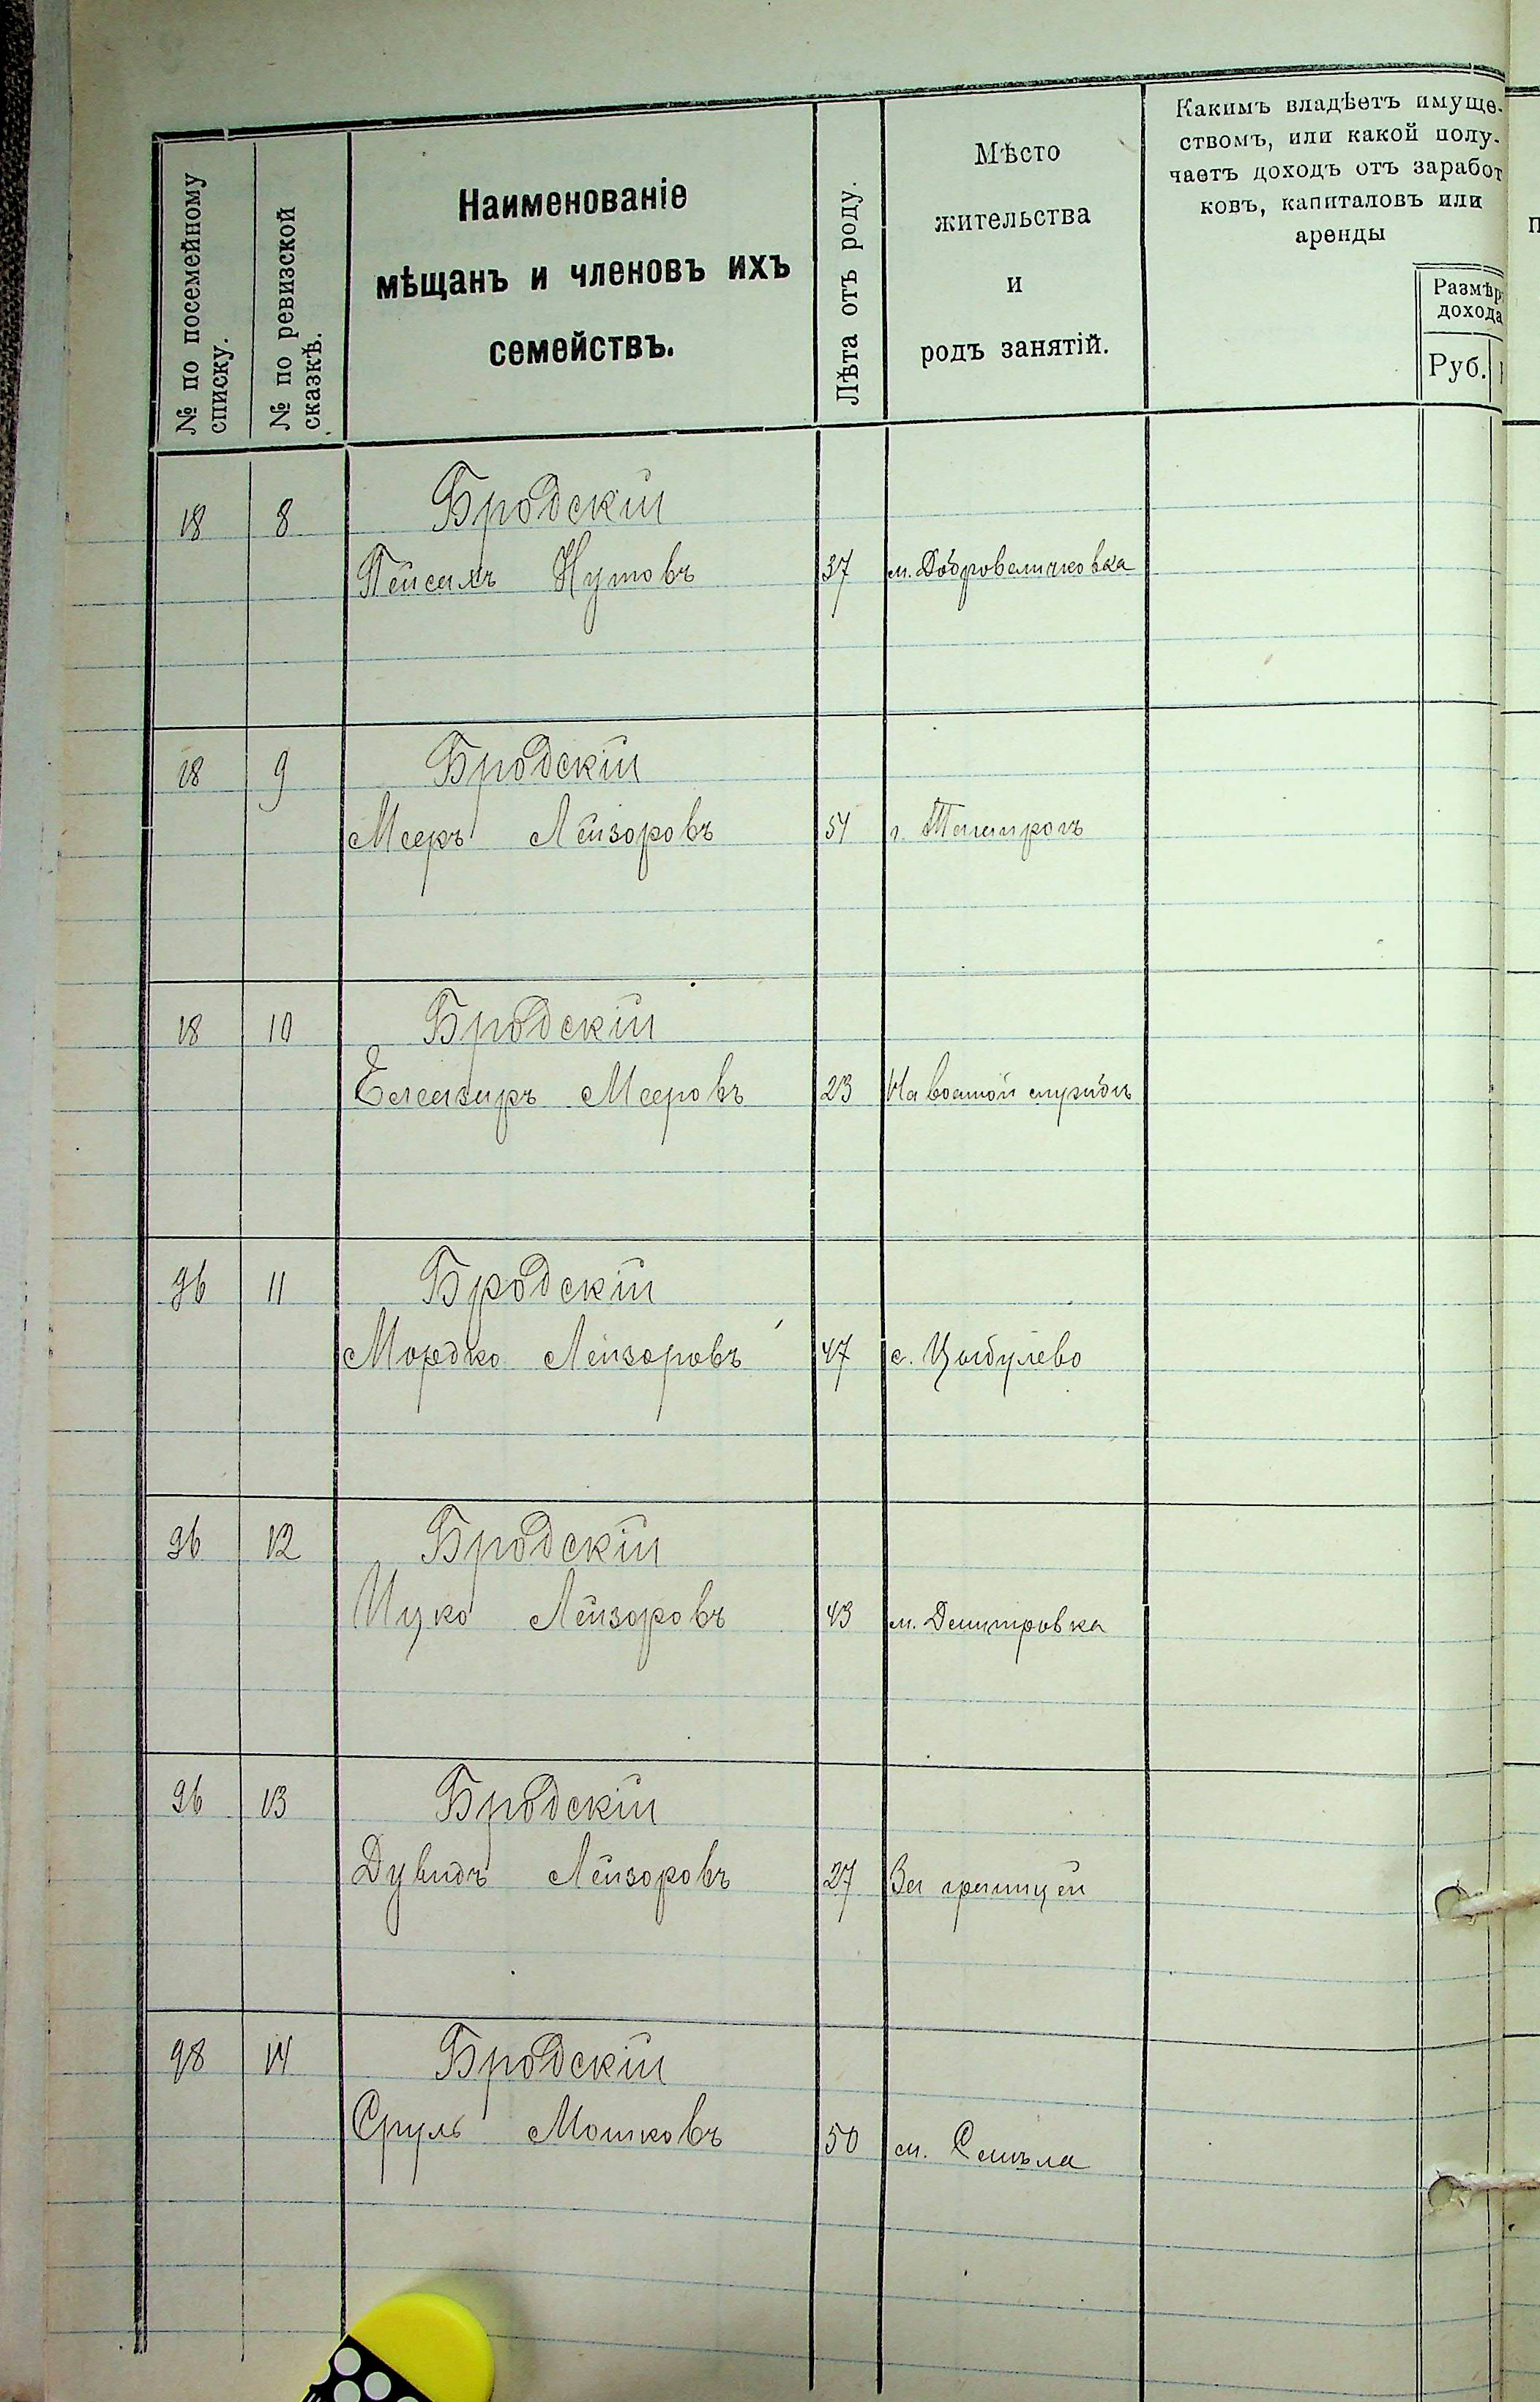 № по посемейному
списку.
№ по ревизской
сказкѣ.
Наименованіе
мѣщанъ и членовъ ихъ
семействъ.
Лѣта отъ роду.
Мѣсто
жительства
и
родъ занятій.
Какимъ владѣетъ имуще-
ствомъ, или какой полу-
чаетъ доходъ отъ заработ
ковъ, капиталовъ или
аренды
Размѣр
дохода
Руб.
18 8 Бродскій
Пейсахъ Нутовъ 37 м. Добровеличковка
18 9 Бродскій
Мееръ Лейзоровъ 51 г. Таганрогъ
18 10 Бродскій
Елеазаръ Мееровъ 23 На военной службѣ
96 11 Бродскій
Мордко Лейзоровъ 47 с. Цыбулево
96 12 Бродскій
Ицко Лейзоровъ 43 м. Дмитровка
96 13 Бродскій
Дувидъ Лейзоровъ 27 За границей
98 14 Бродскій
Сруль Мошковъ 50 м. Смѣла